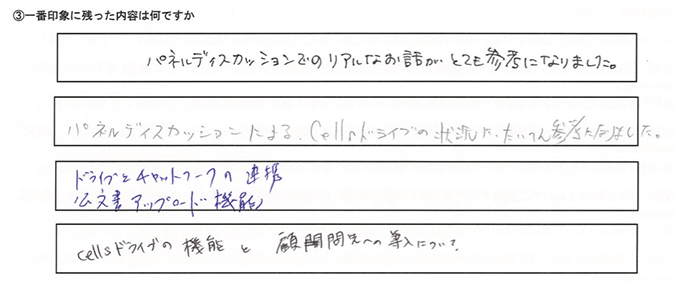 ③一番印象に残った内容は何ですか
パネルディスカッションでのリアルなお話が、とても参考になりました。
パネルディスカッションによる、Cellsドライブの状況に、たいへん参考になりました。
ドライブとチャットワークの連携
公文書アップロード機能
cellsドライブの機能と顧問先への導入について